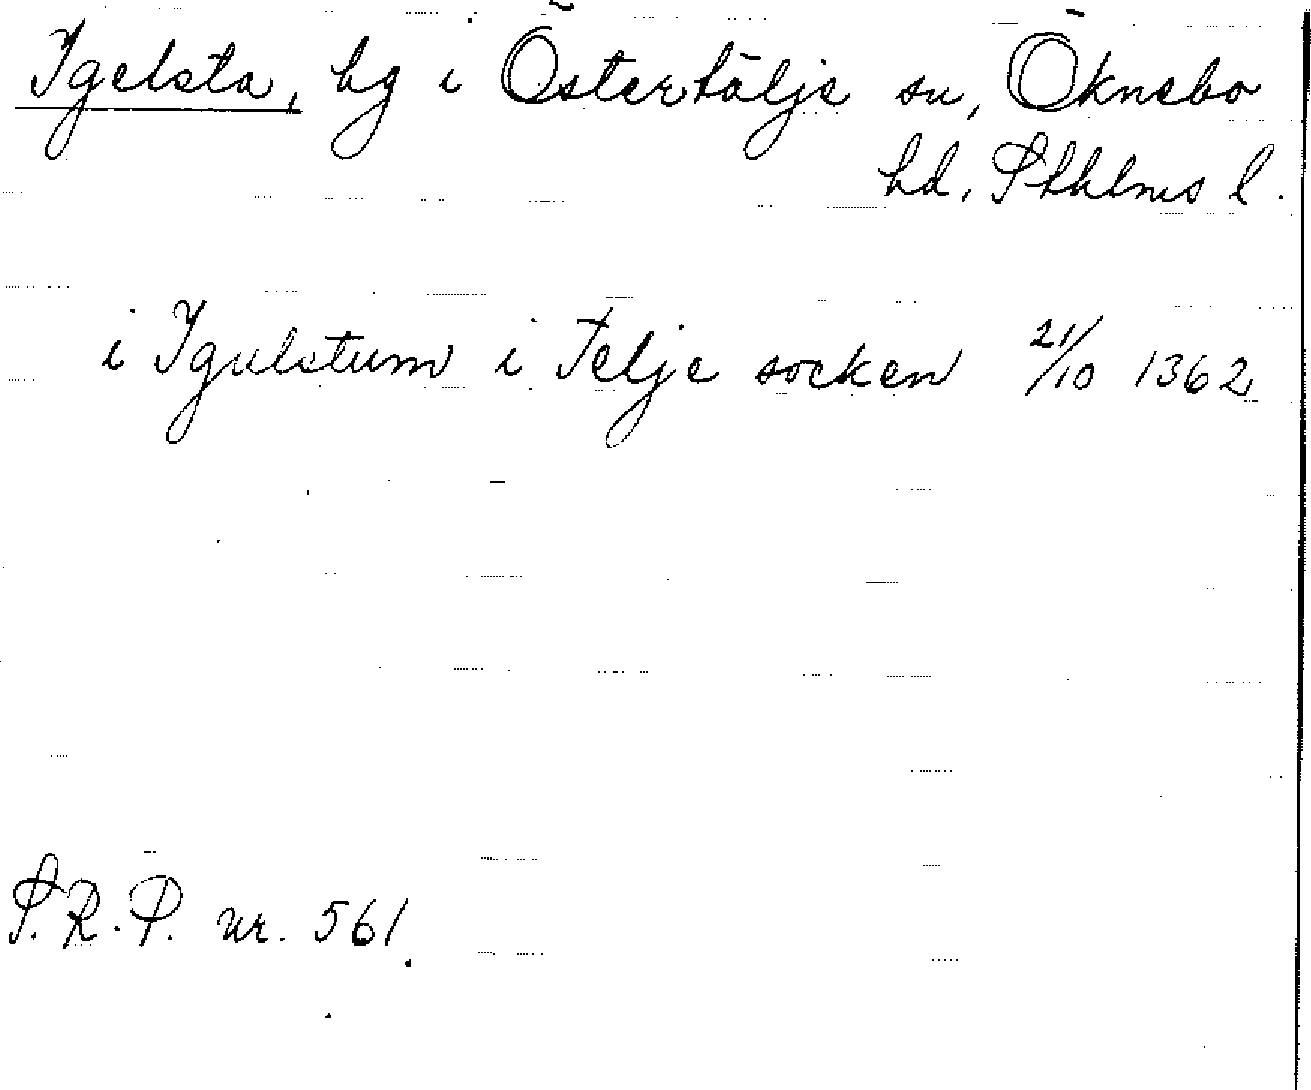 Igelsta, by i Östertälje sn, Öknebo
hd, Sthlms l.
i Igulstum i Telje socken 21/10 1362
S.R.P. nr. 561.